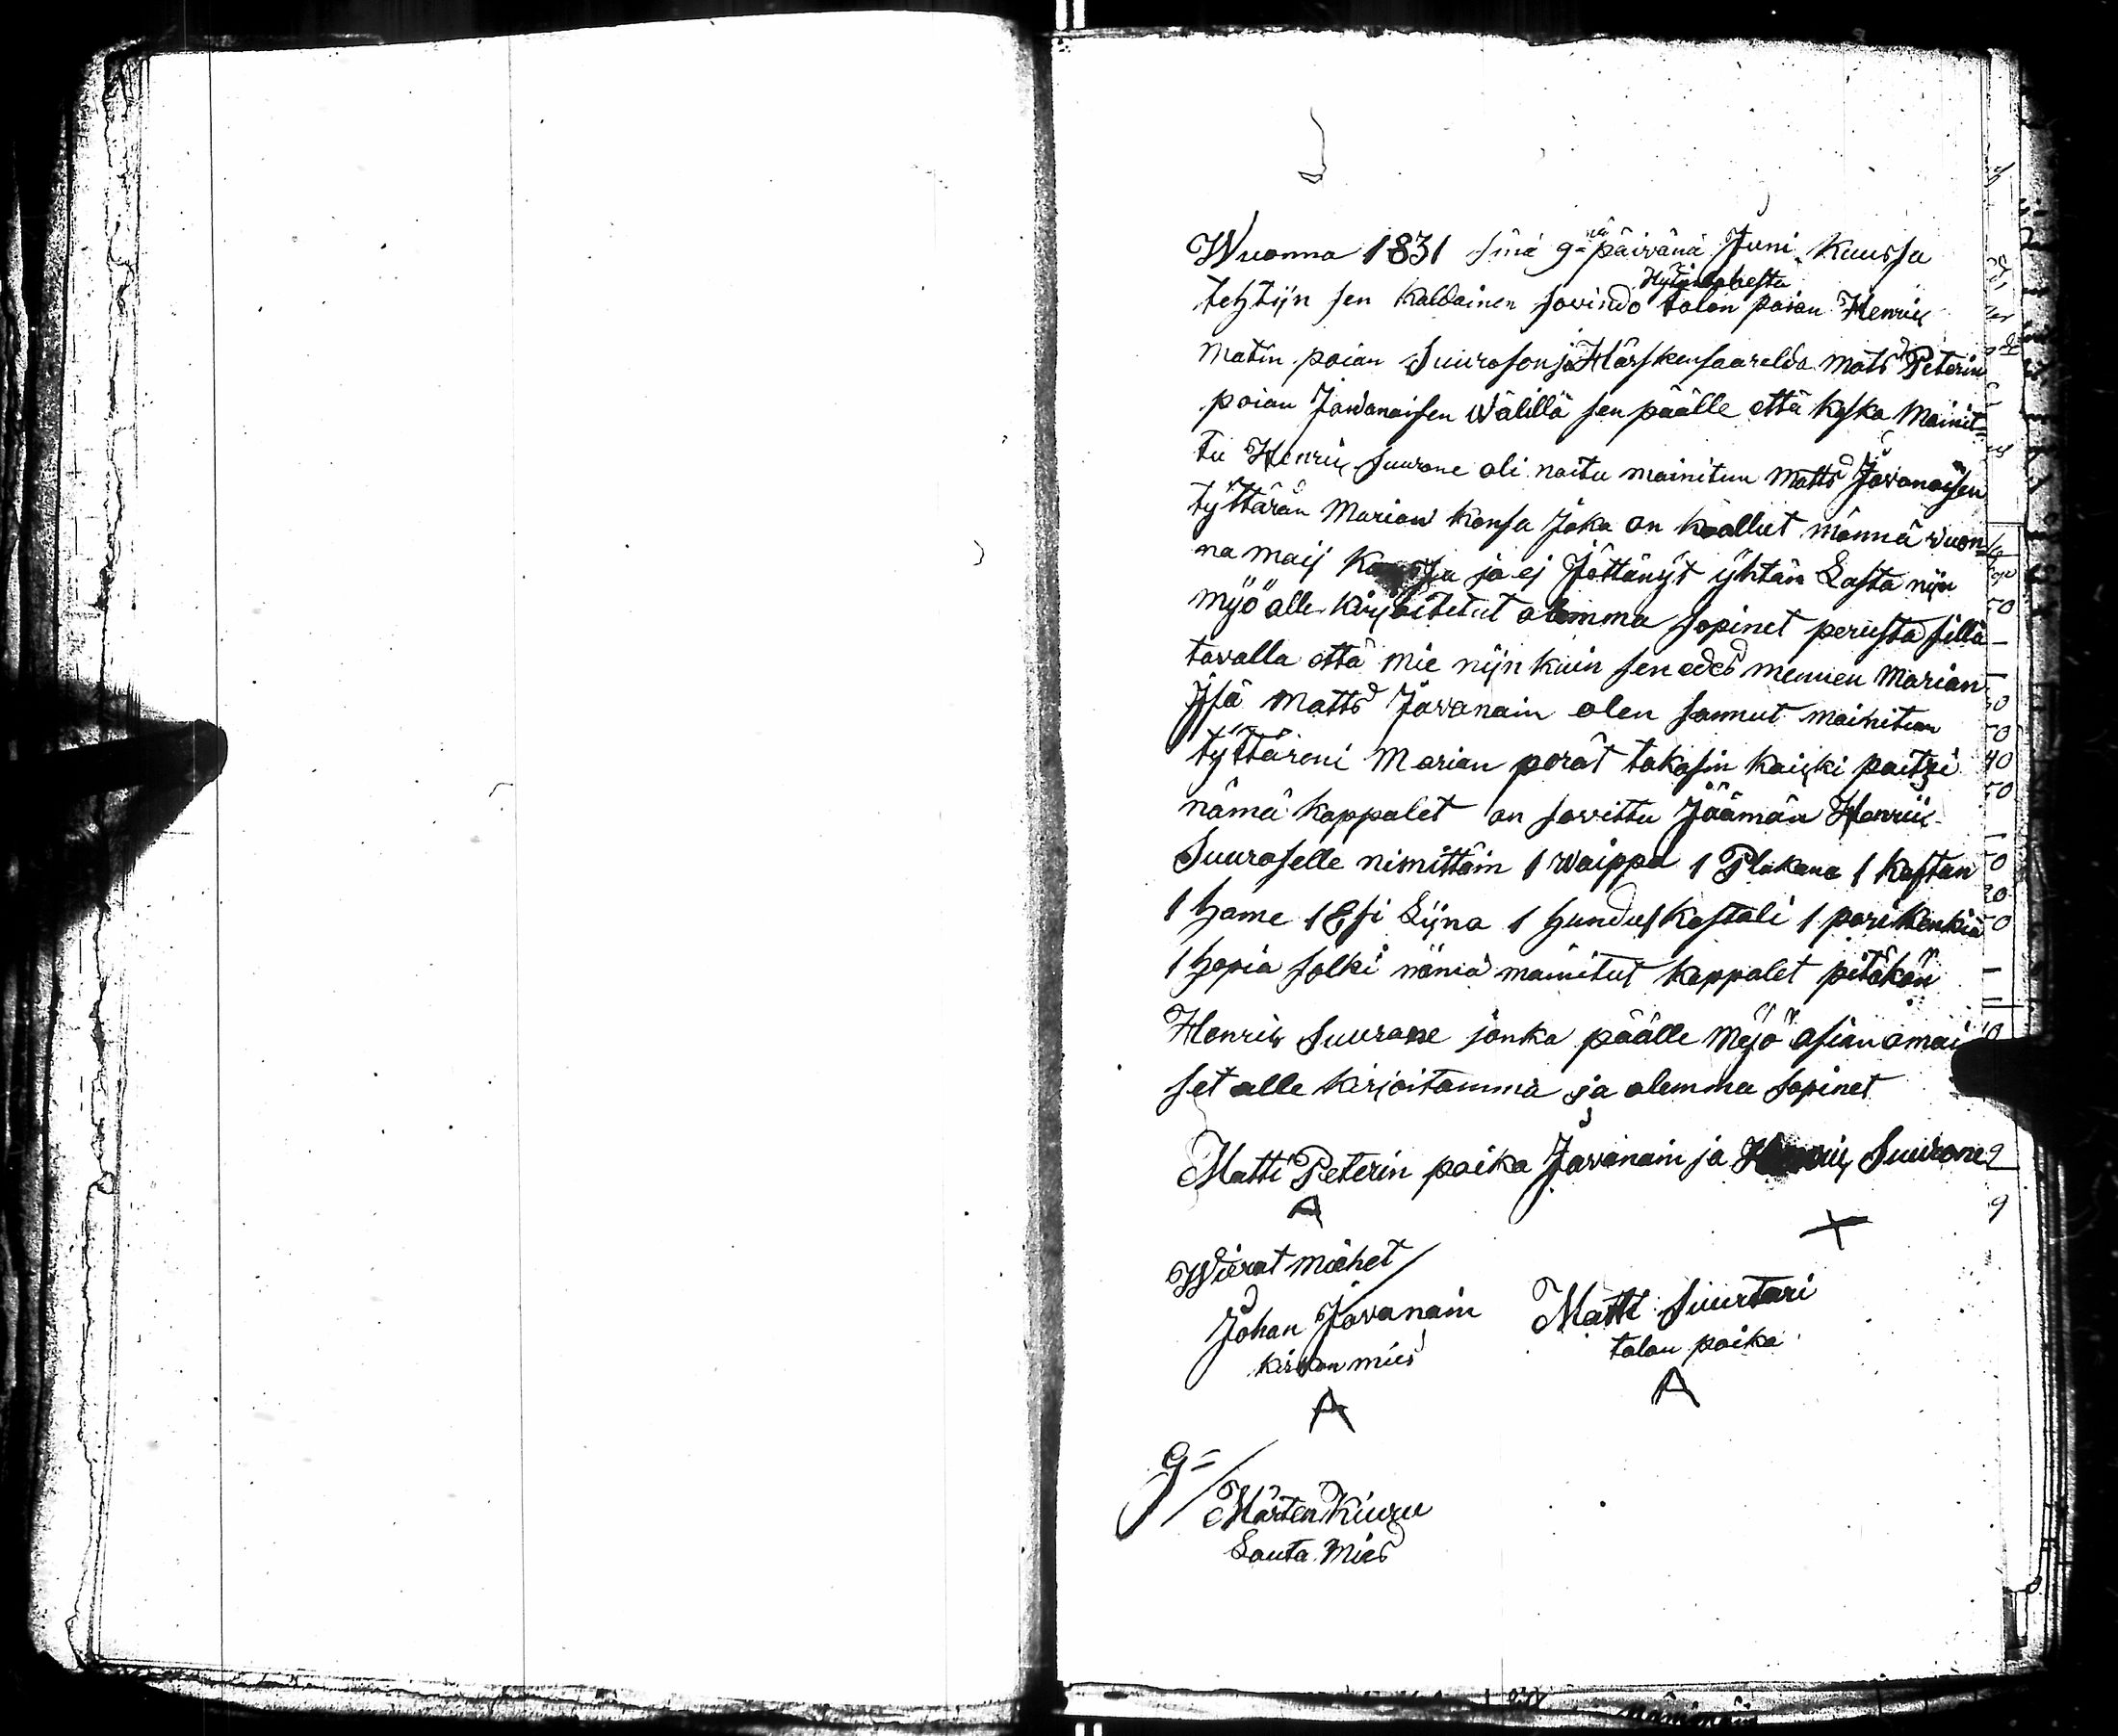 Wuonna 1831 sinä 9=nä päivänä Juni Kuussa
tehtijn sen kaldainen sovindo talon poian Henrix
Matin poian Suurosen ja Härskensaarelda Mats Peterin
poian Jävanaisen wälillä sen päälle että koska Mainit=
tu Henrix Suurone oli naitu mainitun Matts Jävanaisen
tyttärän Marian kansa Joka on kuollut männä vuon=
na maij ja ej Jättänyt yhtän Lasta nijn
myö alle kirjoitetut olemma sopinet perusta sillä
tavalla että mie nijn kuin sen edes mennen Marian
Jsä Matts Jävanain olen saanut mainitun
tyttäreni Marian perät takasin kaicki paitzi
nämä kappalet on sovittu Jäämän Henrix
Suuroselle nimittäin 1 waippa 1 Plakana 1 kaftan
1 hame 1 Esi Lijna 1 hundus kastali 1 pari kenkiä
1 hopia solki nämä mainitut kappalet pitäkän
Henrix Suurone jonka päälle Myö asian omai
set alle kirjoitamma ja olemma sopinet
Matti Peterin poika Jävanain ja Henrix Suurone
Wierat miehet
Johan Jävanain Matti Suurtari
kirkon mies talon poika
Mårten Kiuru
Lauta Mies